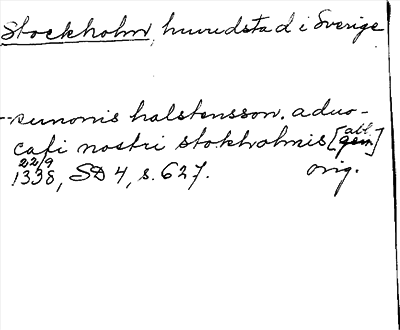 Stockholm, huvudstad i Sverige
-sunonis halstensson. aduo-
cati nostri stokholmis [abl.]
22/9
1338, SD 4, s. 627. orig.